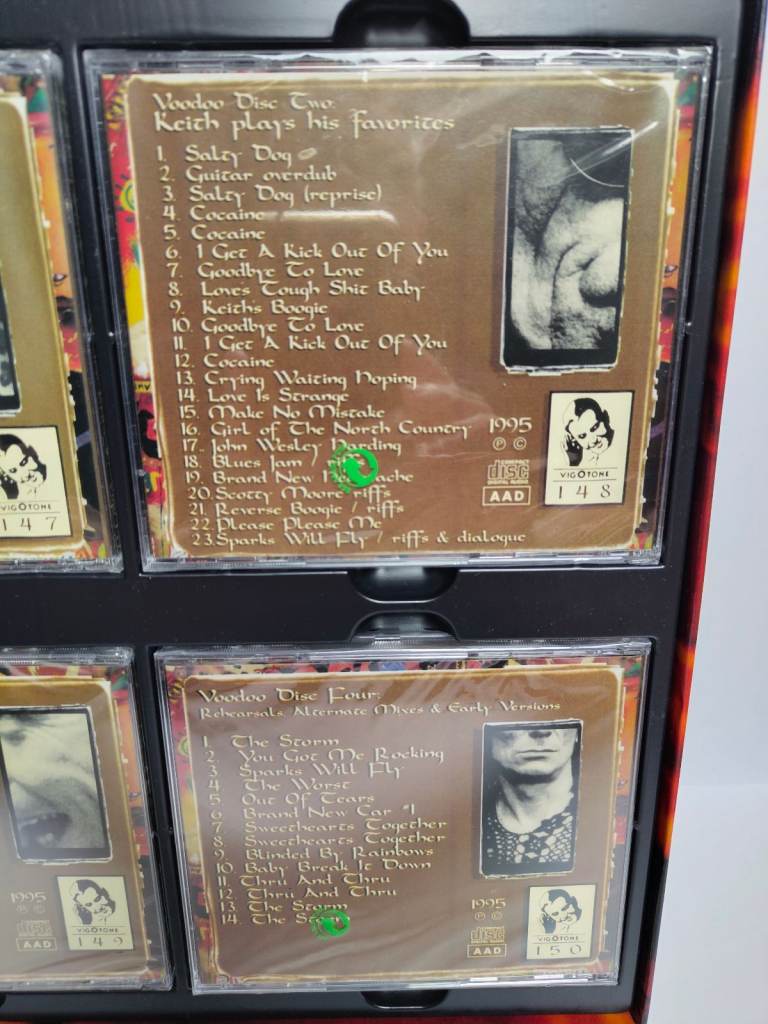 Voodoo Disc Two:
Keith plays his favorites
1. Salty Dog
2. Guitar overdub
3. Salty Dog (reprise)
4. Cocaine
5. Cocaine
6. I Get A Kick Out Of You
7. Goodbye To Love
8. Love's Tough Shit Baby
9. Keith's Boogie
10. Goodbye To Love
11. I Get A Kick Out Of You
12. Cocaine
13. Crying Waiting Hoping
14. Love Is Strange
15. Make No Mistake
16. Girl of The North Country
17. John Wesley Harding
18. Blues Jam / riffs
19. Brand New
20. Scotty Moore riffs
21. Reverse Boogie / riffs
22. Please Please Me
23. Sparks Will Fly / riffs & dialogue
1995
Ⓟ ©
COMPACT
disc
DIGITAL AUDIO
AAD
VIGOTONE
148
VIGOTONE
147
Voodoo Disc Four:
Rehearsals, Alternate Mixes & Early Versions
1. The Storm
2. You Got Me Rocking
3. Sparks Will Fly
4. The Worst
5. Out Of Tears
6. Brand New Car #1
7. Sweethearts Together
8. Sweethearts Together
9. Blinded By Rainbows
10. Baby Break It Down
11. Thru And Thru
12. Thru And Thru
13. The Storm
14. The Storm
1995
Ⓟ ©
disc
AAD
VIGOTONE
150
1995
Ⓟ ©
disc
AAD
VIGOTONE
149